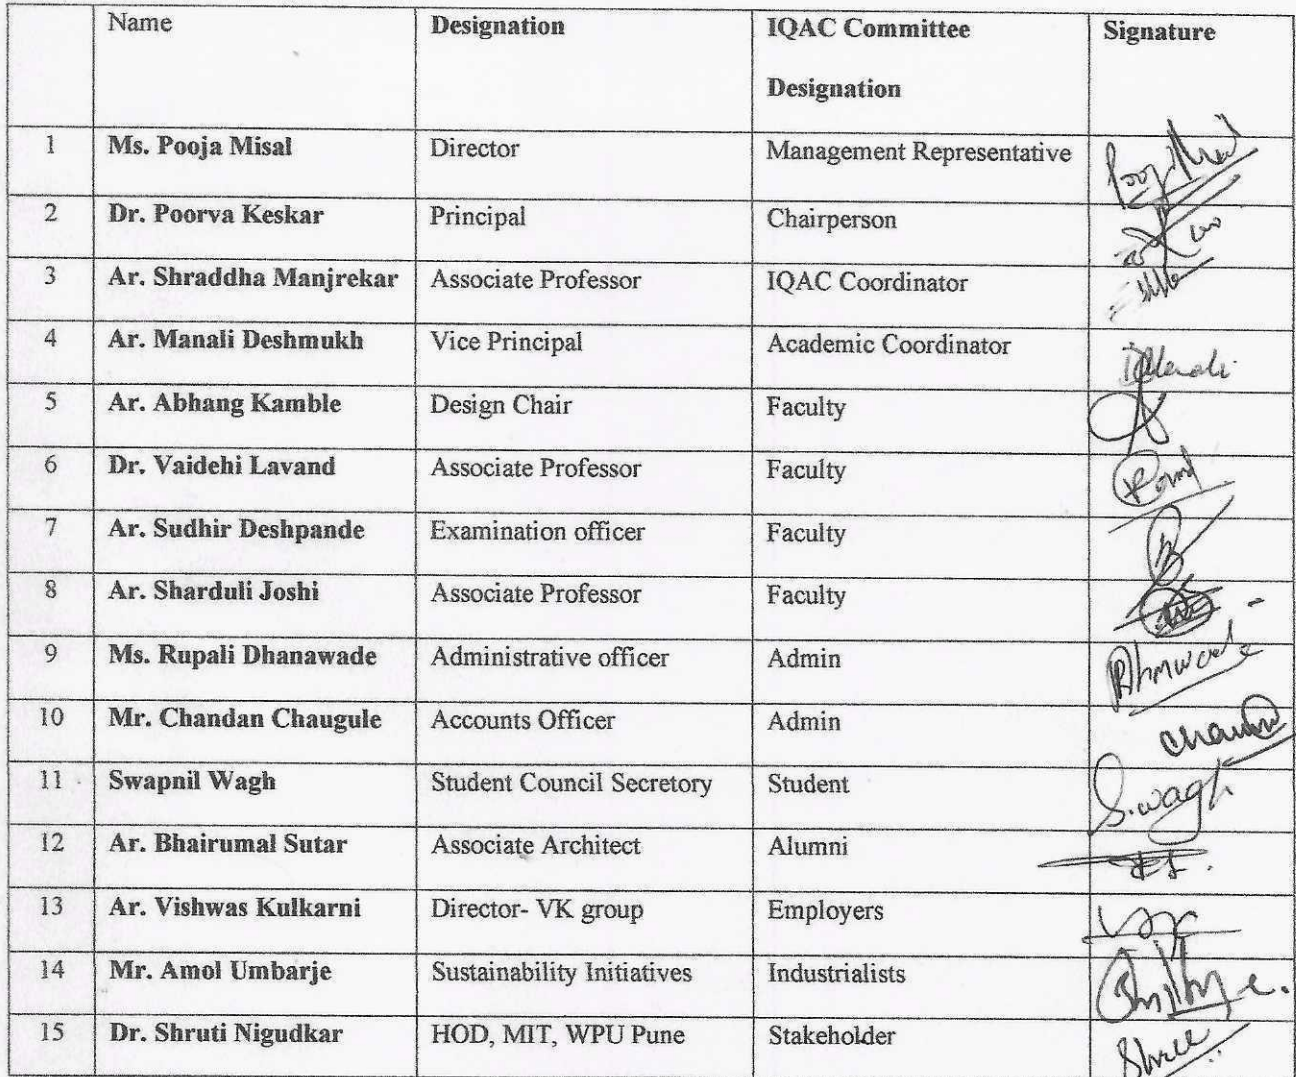 Name Designation IQAC Committee Signature
Designation
1 Ms. Pooja Misal Director Management Representative
2 Dr. Poorva Keskar Principal Chairperson
3 Ar. Shraddha Manjrekar Associate Professor IQAC Coordinator
4 Ar. Manali Deshmukh Vice Principal Academic Coordinator
5 Ar. Abhang Kamble Design Chair Faculty
6 Dr. Vaidehi Lavand Associate Professor Faculty
7 Ar. Sudhir Deshpande Examination officer Faculty
8 Ar. Sharduli Joshi Associate Professor Faculty
9 Ms. Rupali Dhanawade Administrative officer Admin
10 Mr. Chandan Chaugule Accounts Officer Admin
11 Swapnil Wagh Student Council Secretory Student S.wagh
12 Ar. Bhairumal Sutar Associate Architect Alumni
13 Ar. Vishwas Kulkarni Director- VK group Employers
14 Mr. Amol Umbarje Sustainability Initiatives Industrialists
15 Dr. Shruti Nigudkar HOD, MIT, WPU Pune Stakeholder